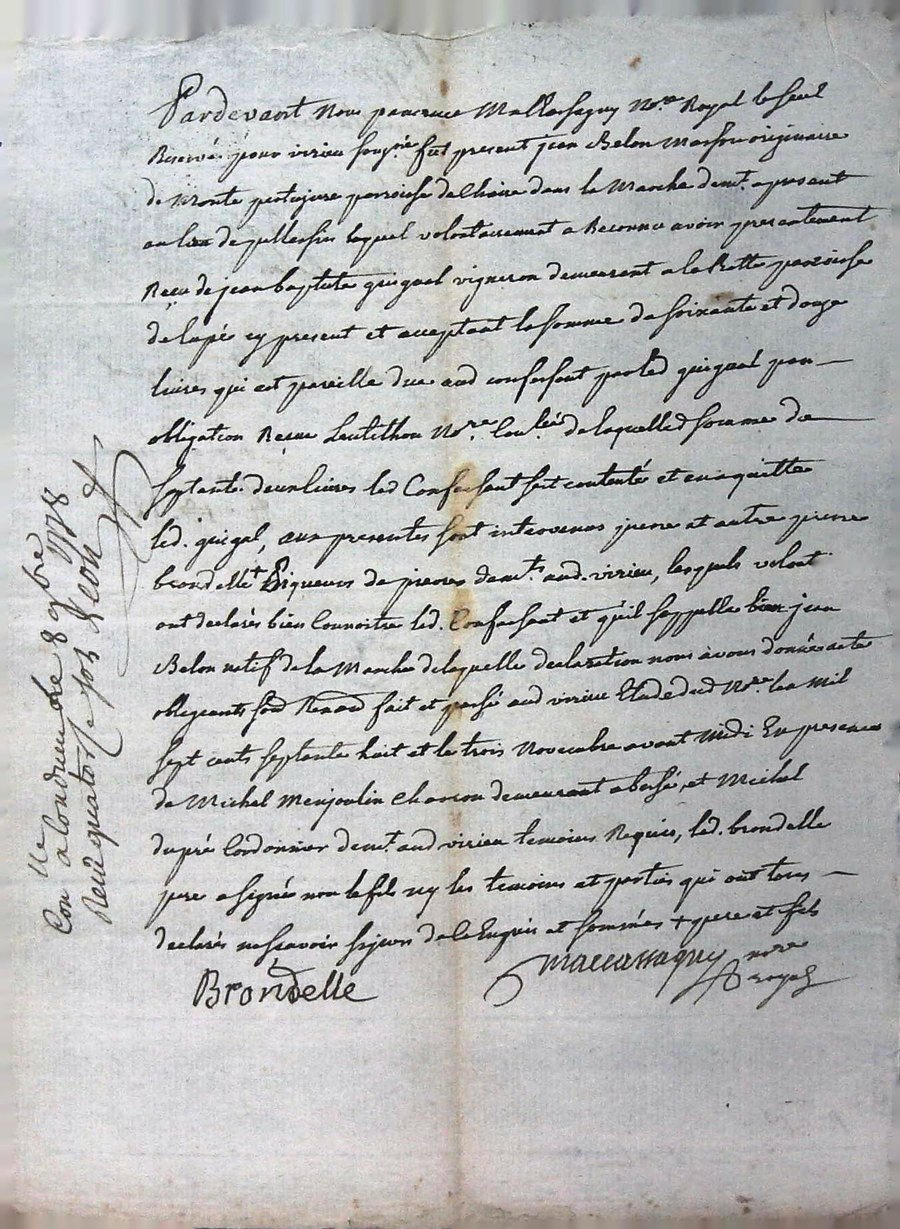 Pardevant Nous Mallassagny No.re Royal le seul
Reservé pour virieu fut present jean Belon Masson originaire
de parroisse de dans la Marche dem.t apresent
au lieu de lequel volontairement a Reconnu avoir presentement
Receu de jean baptiste guigual vigneron demeurant a la paroisse
de lupé cy present et acceptant la somme de soixante et douze
livres qui est pareille due aud confessant par led guigual par
obligation Receue No.re de laquelle d somme de
septante deux livres led Confessant s'est contenté et en quitte
led. guigal, aux presentes sont intervenus pierre et autre pierre
brondelle + Piqueurs de pierres dem.ts aud. virieu, lesquels
ont declarés bien Connoitre led. Confessant et qu'il s'appelle bien jean
Belon natif de la Marche de laquelle declaration nous avons donnés acte
obligeants fait et passé aud virieu Etude dud No.re lan Mil
sept cents septante huit et le trois Novembre avant Midi En presence
de Michel Menjoulin Charron demeurant a et Michel
dupré Cordonnier dem.t aud virieu temoins Requis, led. brondelle
pere a signé non le fils ny les temoins et parties qui ont tous
declarés ne sçavoir signer de ce Enquis et sommés + pere et fils
Brondelle
Mallassagny no.re
royal
Con.lle a Condrieu le 8 9bre 1778
Reçu quatorze sols